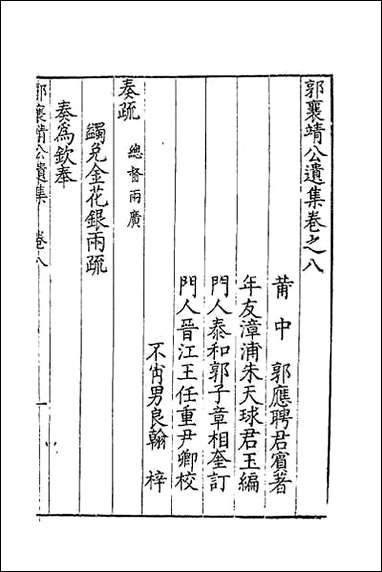 郭襄靖公遺集卷之八
莆中 郭應聘君賓著
年友漳浦朱天球君玉編
門人泰和郭子章相奎訂
門人晉江王任重尹卿校
不肖男良翰 梓
奏疏 總督兩廣
蠲免金花銀兩疏
奏為欽奉
郭襄靖公遺集 卷八 一